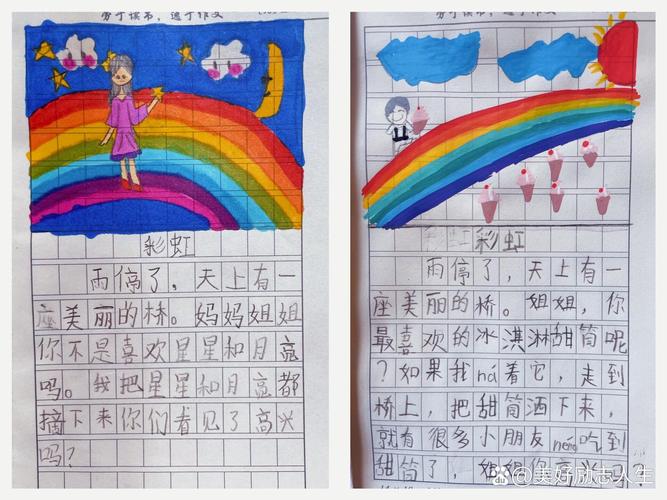 勤于读书，造于作文
彩虹
雨停了，天上有一
座美丽的桥。妈妈姐姐
你不是喜欢星星和月亮
吗。我把星星和月亮都
摘下来你们看见了高兴
吗？
勤于读书，造于作文
彩虹 彩虹
雨停了，天上有一
座美丽的桥。姐姐，你
最喜欢的冰淇淋甜筒呢
？如果我ná着它，走到
桥上，把甜筒洒下来，
就有很多小朋友néng吃到
甜筒了，姐姐你高兴吗？
@美好励志人生